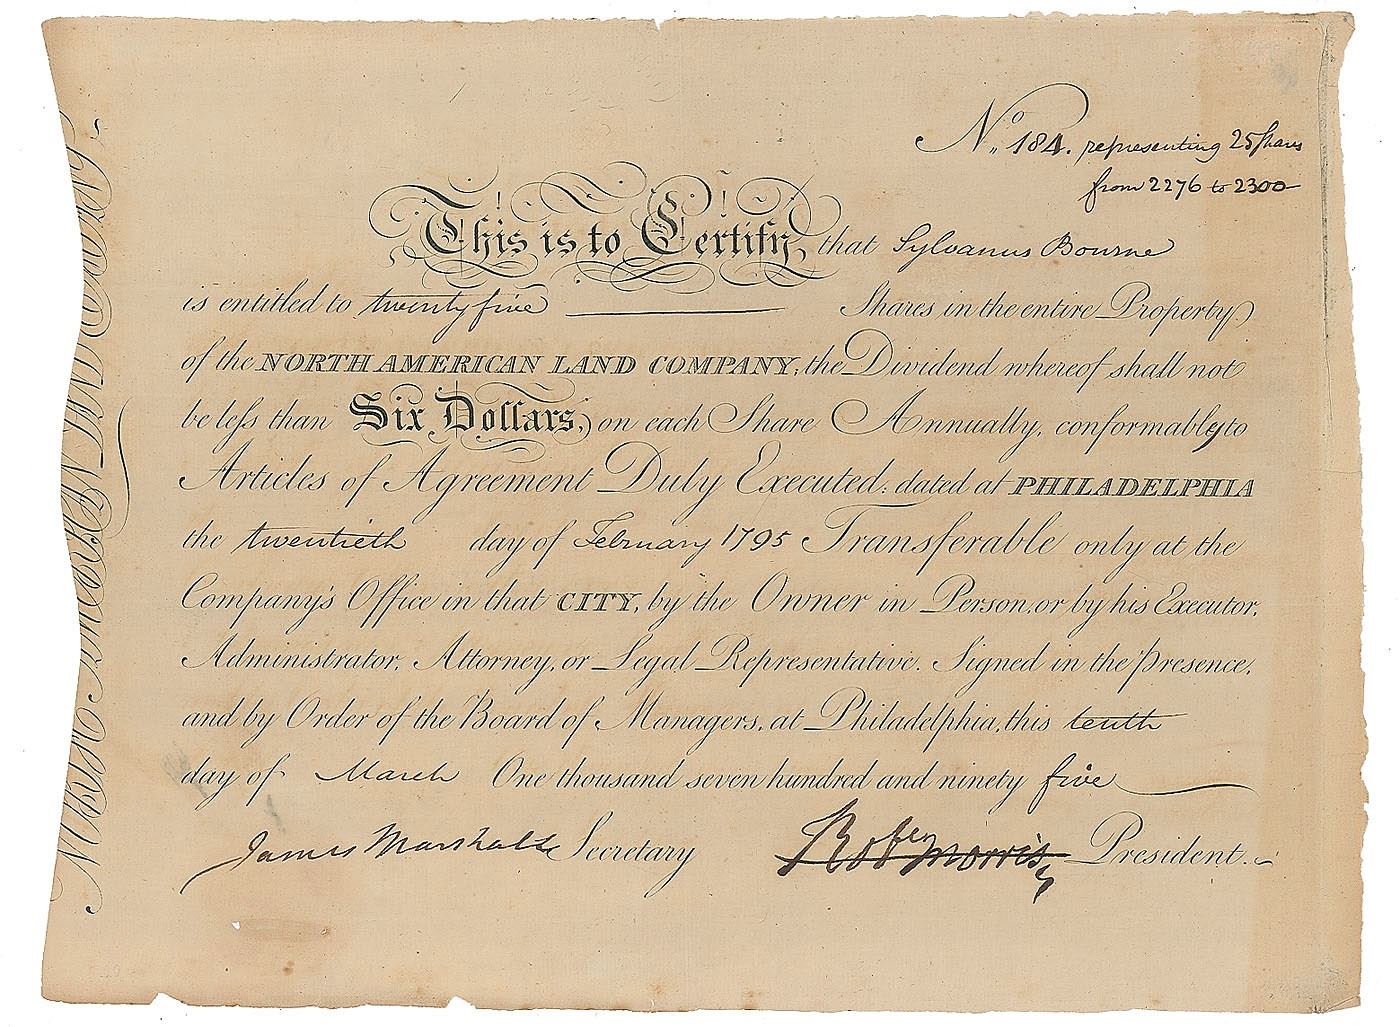 No. 184. representing 25 Shares
from 2276 to 2300
This is to Certify, that Sylvanus Bourne
is entitled to twenty five Shares in the entire Property
of the NORTH AMERICAN LAND COMPANY; the Dividend whereof shall not
be less than Six Dollars, on each Share Annually, conformably to
Articles of Agreement Duly Executed: dated at PHILADELPHIA
the twentieth day of February 1795 Transferable only at the
Company's Office in that CITY, by the Owner in Person, or by his Executor,
Administrator, Attorney, or Legal Representative. Signed in the presence,
and by Order of the Board of Managers, at Philadelphia, this tenth
day of March One thousand seven hundred and ninety five
James Marshall Secretary Robt Morris President.
NORTH AMERICAN LAND COMPANY